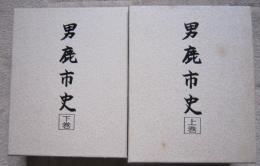 男鹿市史
上巻
男鹿市史
下巻